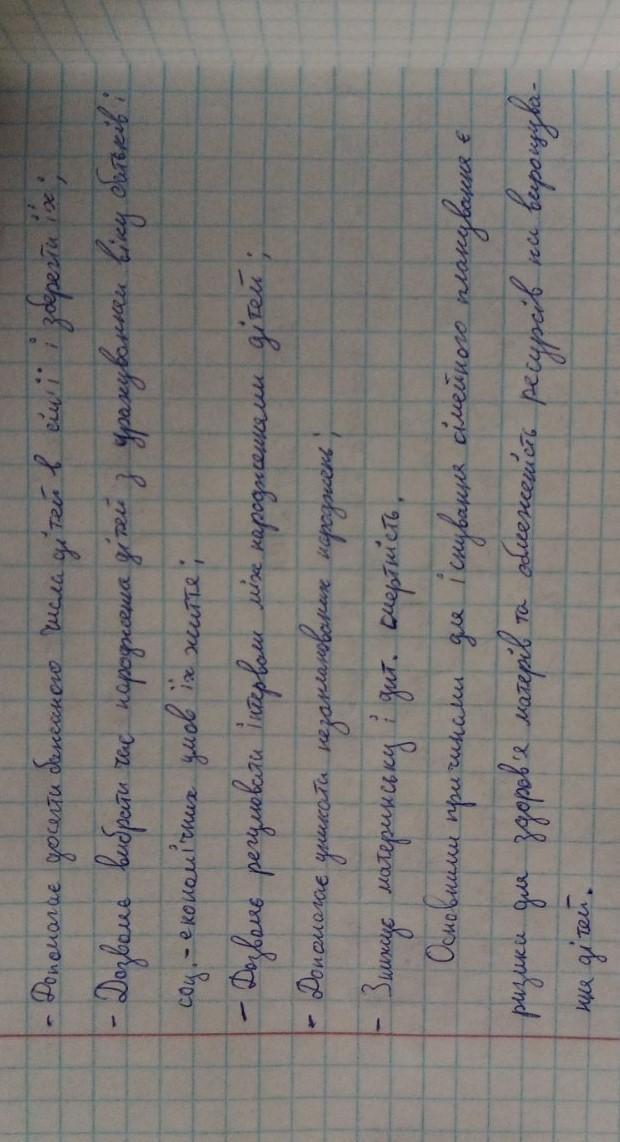 - Допомагає досягти бажаного числа дітей в сім'ї і зберегти їх;
- Дозволяє вибрати час народження дітей з урахуванням віку батьків і
соц.-економічних умов їх життя;
- Дозволяє регулювати інтервали між народженнями дітей;
- Допомагає уникати незапланованих народжень;
- Знижує материнську і дит. смертність.
Основними причинами для існування сімейного планування є
ризики для здоров'я матерів та обмеженість ресурсів на вирощува-
ння дітей.